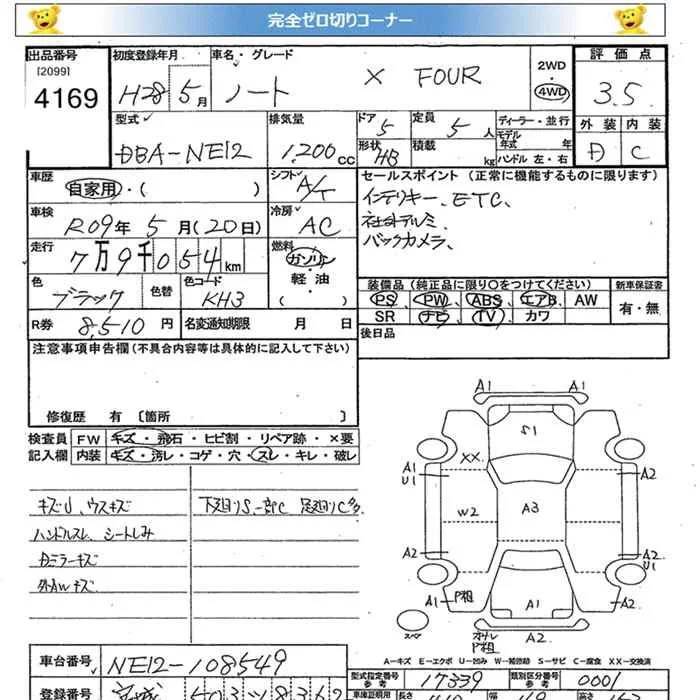 完全ゼロ切りコーナー
出品番号 [2099] 4169
初度登録年月 H28 5月
車名・グレード ノート X FOUR
2WD・4WD
評価点 3.5
外装 D 内装 C
型式 DBA-NE12
排気量 1,200cc
ドア 5 定員 5人
形状 HB 積載 kg
ディーラー・並行
モデル年式 年式
ハンドル 左・右
車歴 自家用・( )
シフト A/T
車検 R09年 5月(20日)
冷房 AC
走行 7万9千054km
燃料 ガソリン・軽油・( )
色 ブラック 色替 色コード KH3
R券 8,510円 名変通知期限 月 日
セールスポイント(正常に機能するものに限ります)
インテリキー、ETC、
社外アルミ
バックカメラ、
装備品(純正品に限り〇をつけてください) 新車保証書
PS、PW、ABS、エアB、AW 有・無
SR ナビ、TV、カワ
後日品
注意事項申告欄(不具合内容等は具体的に記入して下さい)
修復歴 有 〔箇所 〕
検査員 FW キズ・飛石・ヒビ割・リペア跡・×要
記入欄 内装 キズ・汚レ・コゲ・穴・スレ・キレ・破レ
キズU、ウスキズ 下廻りS、一部C 足廻りC多
ハンドルスレ、シートしみ
Dミラーキズ
外AWキズ
A1 A1
S1
XX
A1 U1 A2
W2 A3
A2 A2 U1
A1 P粗 A1 A2
スペア A2
P粗
A−キズ E−エクボ U−凹み W−補修跡 S−サビ C−腐食 XX−交換済
車台番号 NE12-108549
型式指定番号 参考 17339 類別区分番号 参考 0001
登録番号 宮城 503
車庫証明用 長さ 幅 高さ